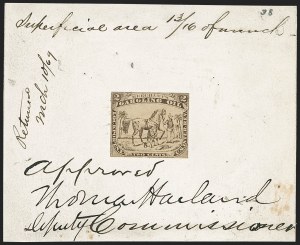 38
Superficial area 13/16 of an inch
Returned
Mch 10/69
GARGLING OIL
TWO CENTS
Approved
Thomas Harland
Deputy Commissioner